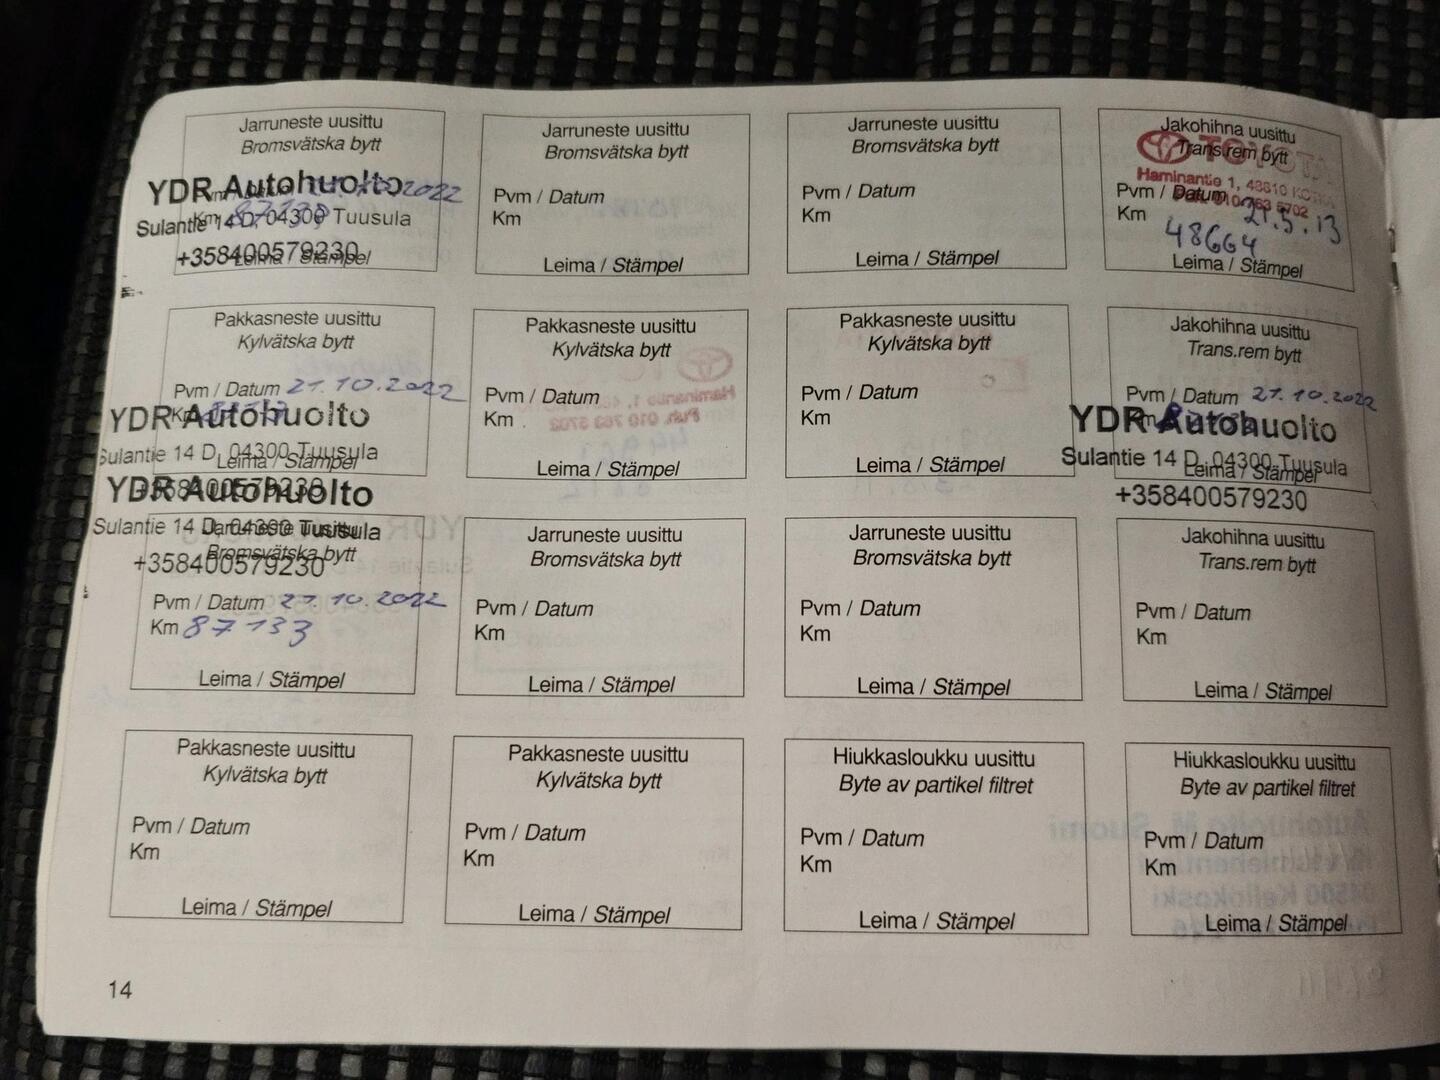 Jarruneste uusittu
Bromsvätska bytt
YDR Autohuolto
2022
Sulantie 14 D, 04300 Tuusula
Km
+358400579230
Leima / Stämpel
Jarruneste uusittu
Bromsvätska bytt
Pvm / Datum
Km
Leima / Stämpel
Jarruneste uusittu
Bromsvätska bytt
Pvm / Datum
Km
Leima / Stämpel
Jakohihna uusittu
Trans.rem bytt
TOYOTA
Haminantie 1, 48810 KOTKA
Pvm / Datum 21.5.13
Km 48664
Leima / Stämpel
Pakkasneste uusittu
Kylvätska bytt
Pvm / Datum 21.10.2022
Km
YDR Autohuolto
Sulantie 14 D, 04300 Tuusula
Leima / Stämpel
+358400579230
Pakkasneste uusittu
Kylvätska bytt
Pvm / Datum
Km
Leima / Stämpel
Pakkasneste uusittu
Kylvätska bytt
Pvm / Datum
Km
Leima / Stämpel
Jakohihna uusittu
Trans.rem bytt
Pvm / Datum 21.10.2022
Km
YDR Autohuolto
Sulantie 14 D, 04300 Tuusula
Leima / Stämpel
+358400579230
YDR Autohuolto
Sulantie 14 D, 04300 Tuusula
Jarruneste uusittu
Bromsvätska bytt
+358400579230
Pvm / Datum 21.10.2022
Km 87133
Leima / Stämpel
Jarruneste uusittu
Bromsvätska bytt
Pvm / Datum
Km
Leima / Stämpel
Jarruneste uusittu
Bromsvätska bytt
Pvm / Datum
Km
Leima / Stämpel
Jakohihna uusittu
Trans.rem bytt
Pvm / Datum
Km
Leima / Stämpel
Pakkasneste uusittu
Kylvätska bytt
Pvm / Datum
Km
Leima / Stämpel
Pakkasneste uusittu
Kylvätska bytt
Pvm / Datum
Km
Leima / Stämpel
Hiukkasloukku uusittu
Byte av partikel filtret
Pvm / Datum
Km
Leima / Stämpel
Hiukkasloukku uusittu
Byte av partikel filtret
Pvm / Datum
Km
Leima / Stämpel
14